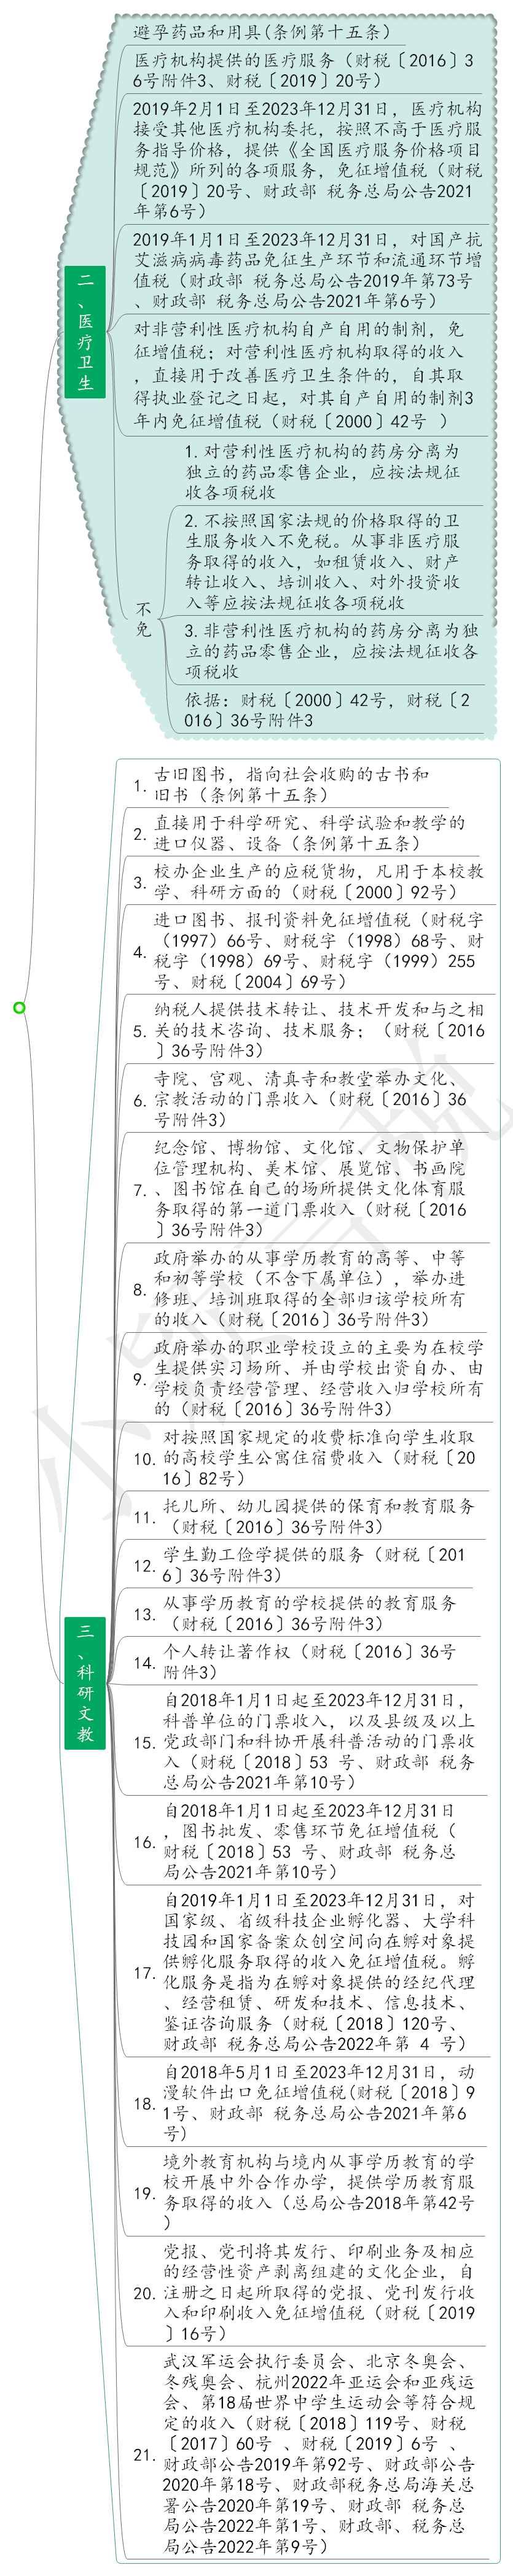 避孕药品和用具(条例第十五条)
医疗机构提供的医疗服务（财税〔2016〕3
6号附件3、财税〔2019〕20号）
2019年2月1日至2023年12月31日，医疗机构
接受其他医疗机构委托，按照不高于医疗服
务指导价格，提供《全国医疗服务价格项目
规范》所列的各项服务，免征增值税（财税
〔2019〕20号、财政部 税务总局公告2021
年第6号）
2019年1月1日至2023年12月31日，对国产抗
艾滋病病毒药品免征生产环节和流通环节增
值税（财政部 税务总局公告2019年第73号
、财政部 税务总局公告2021年第6号）
二、医疗卫生
对非营利性医疗机构自产自用的制剂，免
征增值税；对营利性医疗机构取得的收入
，直接用于改善医疗卫生条件的，自其取
得执业登记之日起，对其自产自用的制剂3
年内免征增值税（财税〔2000〕42号 ）
不免
1. 对营利性医疗机构的药房分离为
独立的药品零售企业，应按法规征
收各项税收
2. 不按照国家法规的价格取得的卫
生服务收入不免税。从事非医疗服
务取得的收入，如租赁收入、财产
转让收入、培训收入、对外投资收
入等应按法规征收各项税收
3. 非营利性医疗机构的药房分离为独
立的药品零售企业，应按法规征收各
项税收
依据：财税〔2000〕42号，财税〔2
016〕36号附件3
三、科研文教
1. 古旧图书，指向社会收购的古书和
旧书（条例第十五条）
2. 直接用于科学研究、科学试验和教学的
进口仪器、设备（条例第十五条）
3. 校办企业生产的应税货物，凡用于本校教
学、科研方面的（财税〔2000〕92号）
4. 进口图书、报刊资料免征增值税（财税字
（1997）66号、财税字（1998）68号、财
税字（1998）69号、财税字（1999）255
号、财税〔2004〕69号）
5. 纳税人提供技术转让、技术开发和与之相
关的技术咨询、技术服务；（财税〔2016
〕36号附件3）
6. 寺院、宫观、清真寺和教堂举办文化、
宗教活动的门票收入（财税〔2016〕36
号附件3）
7. 纪念馆、博物馆、文化馆、文物保护单
位管理机构、美术馆、展览馆、书画院
、图书馆在自己的场所提供文化体育服
务取得的第一道门票收入（财税〔2016
〕36号附件3）
8. 政府举办的从事学历教育的高等、中等
和初等学校（不含下属单位），举办进
修班、培训班取得的全部归该学校所有
的收入（财税〔2016〕36号附件3）
9. 政府举办的职业学校设立的主要为在校学
生提供实习场所、并由学校出资自办、由
学校负责经营管理、经营收入归学校所有
的（财税〔2016〕36号附件3）
10. 对按照国家规定的收费标准向学生收取
的高校学生公寓住宿费收入（财税〔20
16〕82号）
11. 托儿所、幼儿园提供的保育和教育服务
（财税〔2016〕36号附件3）
12. 学生勤工俭学提供的服务（财税〔201
6〕36号附件3）
13. 从事学历教育的学校提供的教育服务
（财税〔2016〕36号附件3）
14. 个人转让著作权（财税〔2016〕36号
附件3）
15. 自2018年1月1日起至2023年12月31日，
科普单位的门票收入，以及县级及以上
党政部门和科协开展科普活动的门票收
入（财税〔2018〕53 号、财政部 税务
总局公告2021年第10号）
16. 自2018年1月1日起至2023年12月31日
，图书批发、零售环节免征增值税（
财税〔2018〕53 号、财政部 税务总
局公告2021年第10号）
17. 自2019年1月1日至2023年12月31日，对
国家级、省级科技企业孵化器、大学科
技园和国家备案众创空间向在孵对象提
供孵化服务取得的收入免征增值税。孵
化服务是指为在孵对象提供的经纪代理
、经营租赁、研发和技术、信息技术、
鉴证咨询服务（财税〔2018〕120号、
财政部 税务总局公告2022年第 4 号）
18. 自2018年5月1日至2023年12月31日，动
漫软件出口免征增值税(财税〔2018〕9
1号、财政部 税务总局公告2021年第6
号)
19. 境外教育机构与境内从事学历教育的学
校开展中外合作办学，提供学历教育服
务取得的收入（总局公告2018年第42号
）
20. 党报、党刊将其发行、印刷业务及相应
的经营性资产剥离组建的文化企业，自
注册之日起所取得的党报、党刊发行收
入和印刷收入免征增值税（财税〔2019
〕16号）
21. 武汉军运会执行委员会、北京冬奥会、
冬残奥会、杭州2022年亚运会和亚残运
会、第18届世界中学生运动会等符合规
定的收入（财税〔2018〕119号、财税
〔2017〕60号 、财税〔2019〕6号 、
财政部公告2019年第92号、财政部公告
2020年第18号、财政部税务总局海关总
署公告2020年第19号、财政部 税务总
局公告2022年第1号、财政部、税务总
局公告2022年第9号）
小颖言税